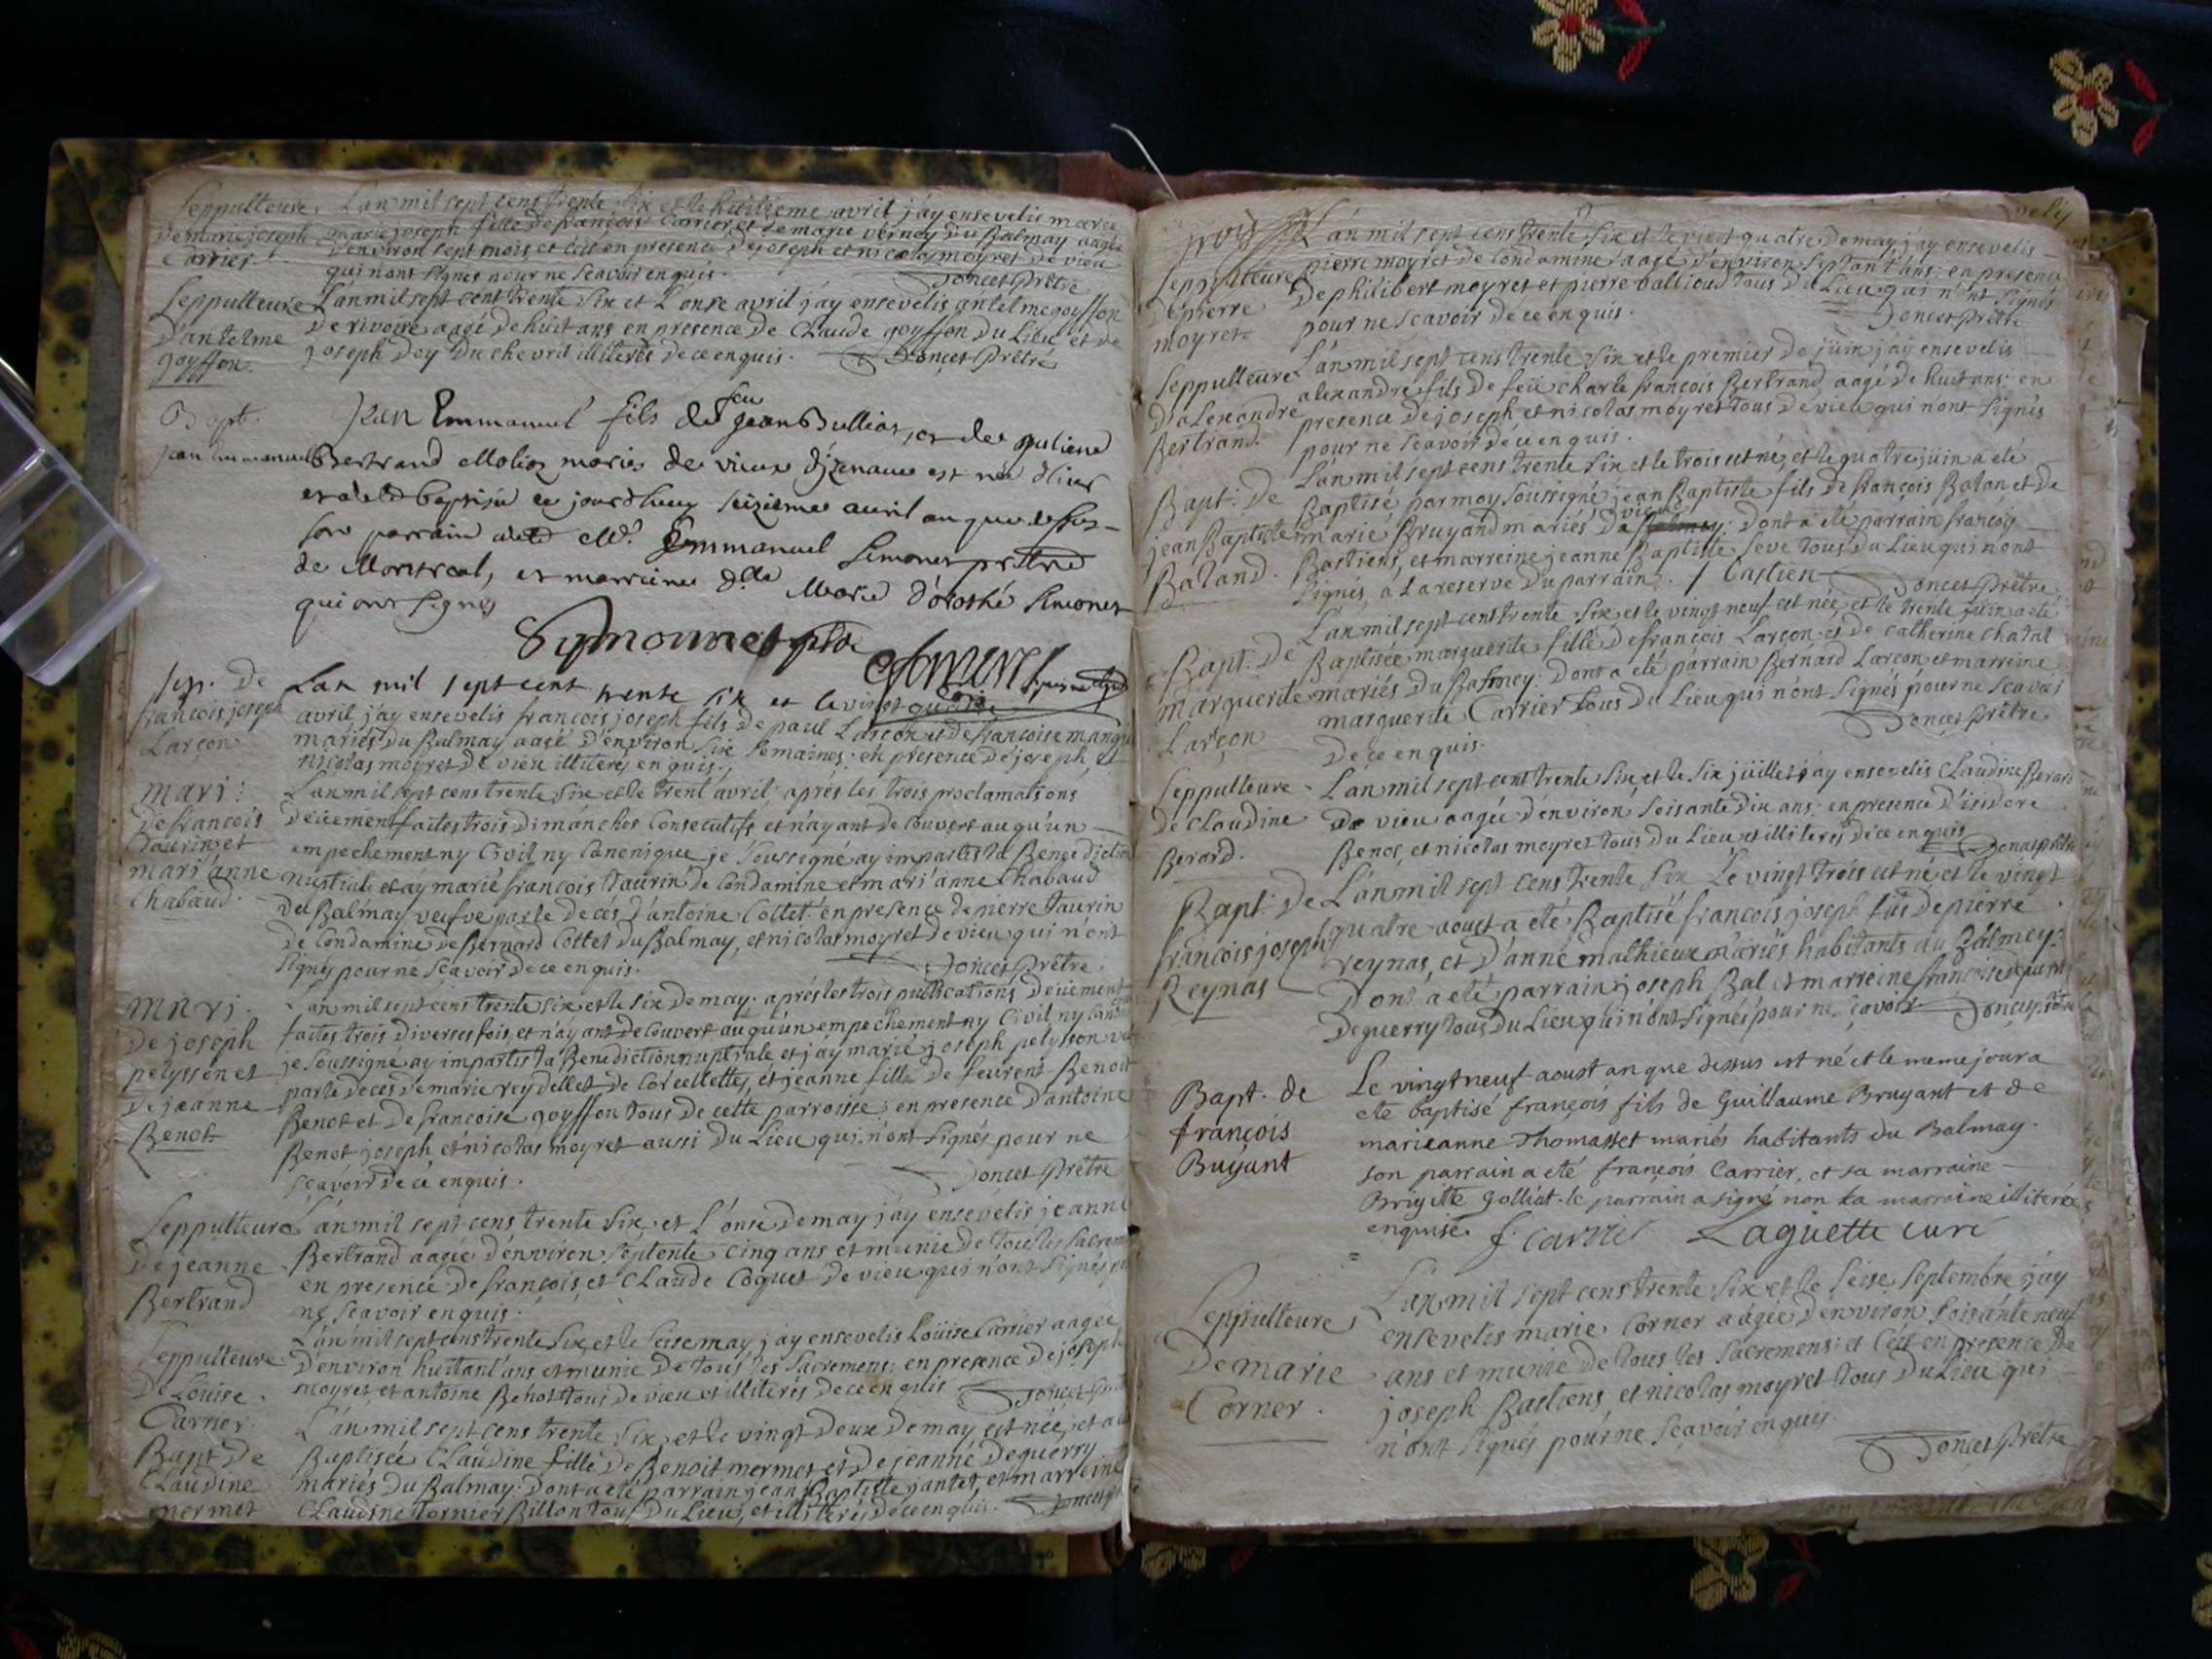 Seppulteure
de marie joseph
Carrier.
L'an mil sept cens trente six et le huitieme avril j'ay ensevelis marie
marie joseph fille de françois Carrier et de marie vernay du Balmay aagée
d'environ sept mois et ce en presence de joseph et nicolas moyret de vieu
qui n'ont signés pour ne sçavoir enquis.
Joncet Prêtre
Seppulteure
d'antelme
goyffon.
L'an mil sept cent trente six et L'onse avril j'ay ensevelis antelme goyffon
de rivoire aagé de huit ans en presence de Claude goyffon du Lieu et de
joseph Doy du chevril illiterés de ce enquis.
Joncet Prêtre
Bapt.
jean emmanuel
Jean Emmanuel fils de feu jean Bullioz, et de juliene
Bertrand Molioz mariés de vieux d'izenave est né d'hier
et a eté baptisé ce jourdhuy seizieme avril an que dessus
son parrain a eté Mr. Emmanuel Simonet prêtre
de Montreal, et marreine dlle Marie d'orothé Simonet
qui ont signés
Symonnet ptre
Sep. de
françois joseph
Larçon
Lan mil sept cent trente six et le vingt quatre
avril j'ay ensevelis françois joseph fils de paul Larçon et de françoise
mariés du Balmay aagé d'environ six semaines: en presence de joseph et
nicolas moyret de vieu illiterés enquis.
mari:
de françois
taurin et
mari'anne
Chabaud.
L'an mil sept cens trente six et le trent avril, après les trois proclamations
deüement faites trois dimanches Consecutifs et n'ayant decouvert auqu'un
empechement ny Civil ny Canonique je soussigné ay impartis la Benediction
nuptiale et ay marié françois taurin de Condamine et mari'anne Chabaud
du Balmay veufve par le deces d'antoine Cottet: en presence de pierre taurin
de Condamine de Bernard Cottet du Balmay, et nicolas moyret de vieu qui n'ont
signés pour ne sçavoir de ce enquis.
Joncet Prêtre.
mari.
de joseph
pelysson et
de jeanne
Benot
L'an mil sept cens trente six et le six de may. aprés les trois publications deüement
faites trois diverses fois, et n'ayant decouvert auqu'un empechement ny Civil ny
je soussigné ay impartis la Benediction nuptiale et j'ay marié joseph pelysson
par le deces de marie reydellet de Corcellette, et jeanne fille de
Benot et de françoise goyffon tous de cette parroisse; en presence d'antoine
Benot joseph et nicolas moyret aussi du Lieu qui n'ont signés pour ne
sçavoir de ce enquis.
Joncet Prêtre
Seppulteure
de jeanne
Bertrand
L'an mil sept cens trente six et L'onse de may j'ay ensevelis jeanne
Bertrand aagée d'environ septente cinq ans et munie de tous les
en presence de françois, et Claude Coquet de vieu qui n'ont signés
ne sçavoir enquis.
Seppulteure
de Louise
Carrier.
L'an mil sept cens trente six et le seise may j'ay ensevelis Loüise Carrier aagée
d'environ huitant'ans et munie de tous les sacremens: en presence de joseph
moyret, et antoine Benot tous de vieu et illiterés de ce enquis
Joncet
Bapt de
Claudine
mermet
L'an mil sept cens trente six, et le vingt deux de may est née, et a
Baptisée Claudine fille de Benoit mermet et de jeanne deguerry
mariés du Balmay. Dont a eté parrain jean Baptiste jantet, et marreine
Claudine tornier Billon tous du Lieu, et illiterés de ce enquis.
Joncet
Seppulteure
de pierre
moyret.
L'an mil sept cens trente six et le vingt quatre de may, j'ay ensevelis
pierre moyret de Condamine aagé d'environ septant'ans: en presence
de philibert moyret et pierre ballioud tous du Lieu qui n'ont signés
pour ne scavoir de ce enquis.
Joncet Prêtre
Seppulteure
d'alexandre
Bertrand.
L'an mil sept cens trente six et le premier de juin j'ay ensevelis
alexandre fils de feü charle françois Bertrand aagé de huit ans: en
presence de joseph et nicolas moyret tous de vieu qui n'ont signés
pour ne scavoir de ce enquis.
Bapt: de
jean Baptiste
Baland.
L'an mil sept cens trente six et le trois est né, et le quatre juin a eté
Baptisé par moy soussigné jean Baptiste fils de françois Balan et de
marie Bruyand mariés de vieu. dont a eté parrain françois
Bastiens, et marreine jeanne Baptiste seve tous du Lieu qui n'ont
signés, à la reserve du parrain.
f Bastien
Joncet Prêtre.
Bapt: de
marguerite
Larçon
L'an mil sept cent trente six et le vingt neuf est née, et le trente juin a eté
Baptisée marguerite fille de françois Larçon et de catherine chatal
mariés du Balmey: Dont a eté parrain Bernard Larçon et marreine
marguerite Carrier tous du Lieu qui n'ont signés pour ne scavoir
de ce enquis.
Joncet Prêtre
Seppulteure
de Claudine
Berard.
L'an mil sept cent trente six, et le six jüillet j'ay ensevelis Claudine Berard
de vieu aagée d'environ soisante dix ans: en presence d'isidore
Benot, et nicolas moyret tous du Lieu et illiterés de ce enquis
Joncet Prêtre
Bapt: de
françois joseph
Reynas
L'an mil sept cens trente six Le vingt trois est né et le vingt
quatre aoust a eté Baptisé françois joseph fils de pierre
reynas, et d'anne mathieux mariés habitants au Balmey:
Dont a eté parrain joseph Bal et marreine françoise
deguerry tous du Lieu qui n'ont signés pour ne sçavoir.
Joncet Prêtre
Bapt. de
François
Buyant
Le vingt neuf aoust an que dessus est né et le meme jour a
eté baptisé françois fils de Guillaume Bruyant et de
marieanne Thomasset mariés habitants du Balmay.
son parrain a eté françois Carrier, et sa marraine
Brigitte Golliat. le parrain a signé non la marraine illiterée
enquise. f. carrier Laguette curé
Seppülteure
de marie
Corner.
L'an mil sept cens trente six et le seise septembre j'ay
ensevelis marie Corner aagée d'environ soisante neuf
ans et munie de tous les sacremens: et Cest en presence de
joseph Bastiens, et nicolas moyret tous du Lieu qui
n'ont signés pour ne sçavoir enquis.
Joncet Prêtre